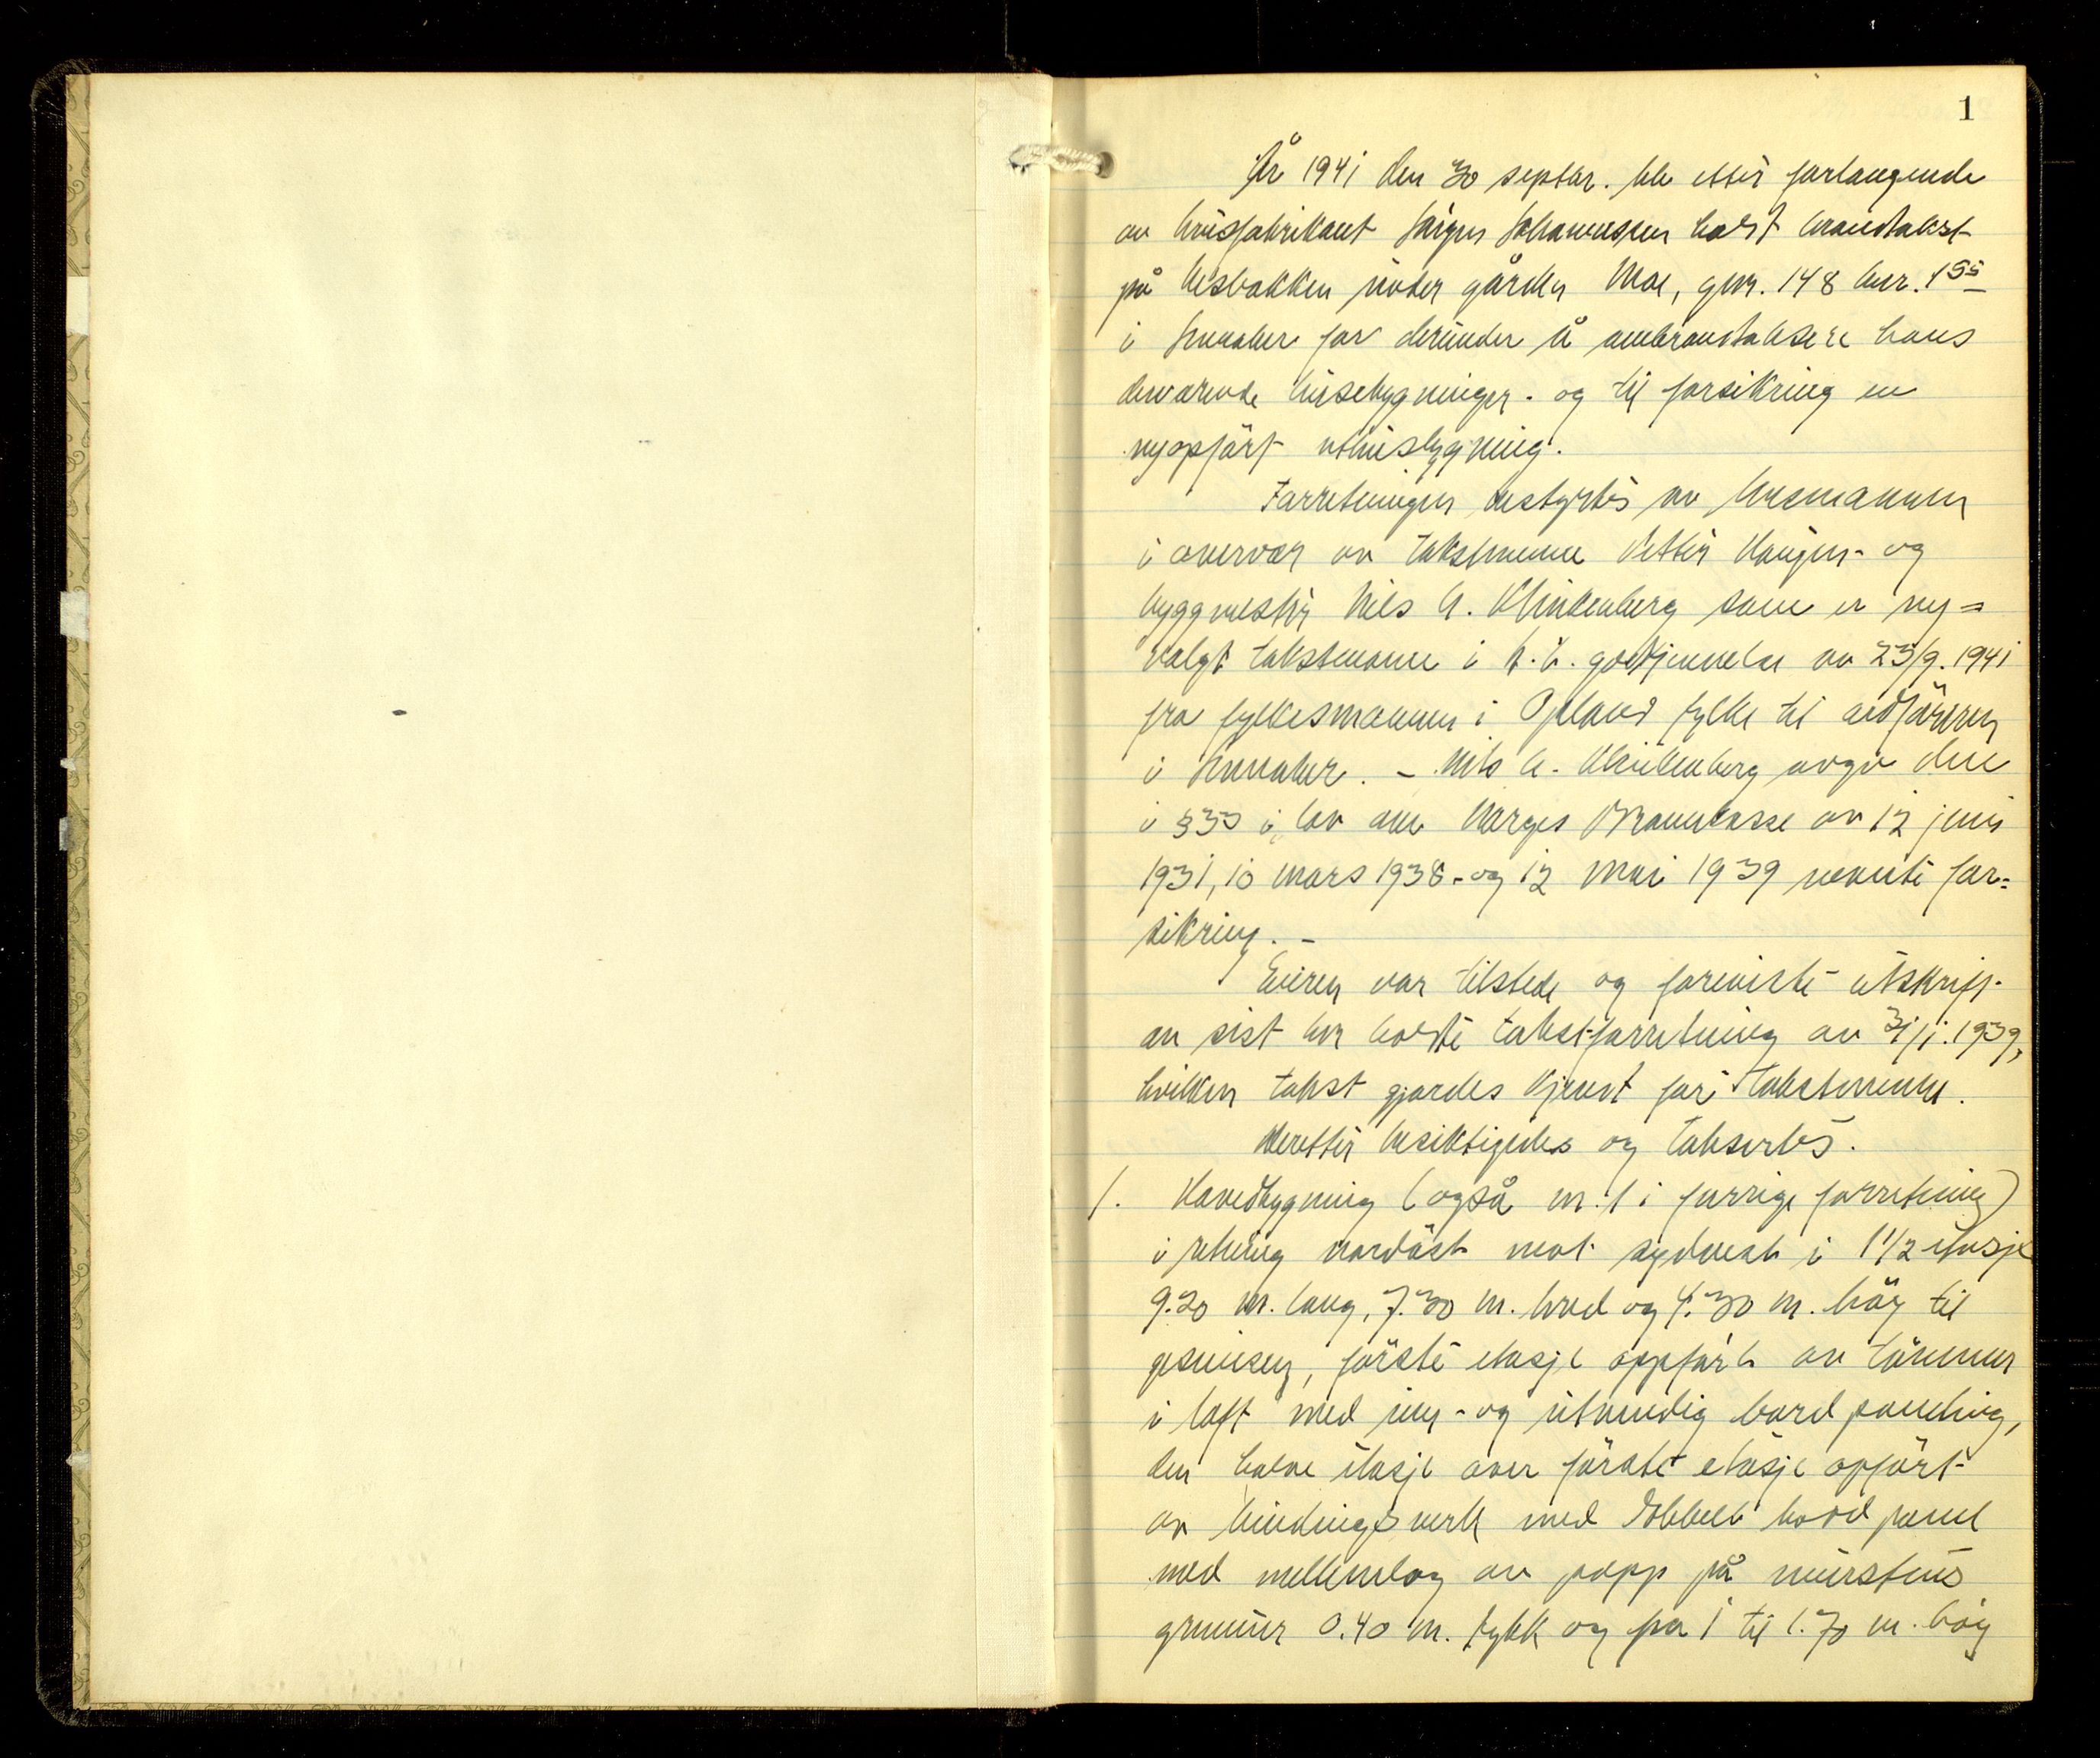 1
År 1941 den 30 septbr. ble etter forlangende
av brusfabrikant Jørgen Johannessen holdt brandtakst
på Nesbakken under gården Moe, gnr. 148 bnr. 155
i Jevnaker for derunder å ombrandtaksere hans
derværende husebygninger - og til forsikring en
nyopført uthusbygning.
Forretningen bestyrtes av lensmannen
i overvær av takstmenn Petter Haugen - og
byggmester Nils A. Klinkenberg som er ny=
valgt takstmann i h.t. godkjennelse av 23/9. 1941
fra fylkesmannen i Opland fylke til
i Jevnaker. - Nils A. Klinkenberg avga den
i § 35 i lov om Norges Brannkasse av 12 juni
1931, 10 mars 1938 - og 12 mai 1939 nevnte for=
sikring. -
Eieren var tilstede og foreviste utskrift
av sist her holdte takstforretning av 3/1. 1939,
hvilken takst gjordes kjent for takstmennene.
Deretter besiktigedes og takseredes.
1. Hovedbygning (også nr. 1 i forrige forretning)
i retning nordöst mot sydvest i 1 1/2 etasje
9.20 m. lang, 7.30 m. bred og 4.30 m. höy til
gesimsen, förste etasje oppfört av tömmer
i laft med inn- og utvendig bord paneling,
den halve etasje over förste etasje opfört
av bindingsverk med dobbelt bord panel
med mellemlag av papp på murstens
grunmur 0.40 m. tykk og fra 1 til 1.70 m. höy